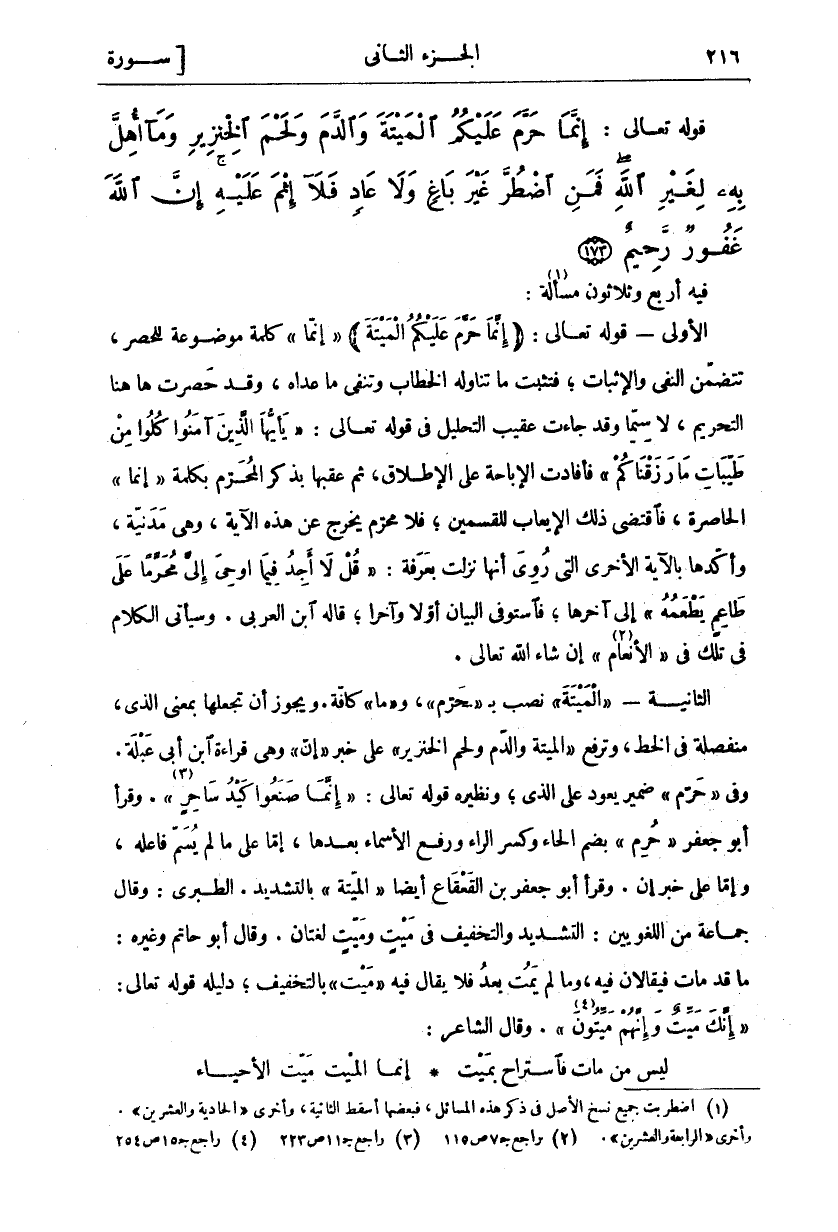 ٢١٦ الجزء الثانى [ سورة
قوله تعالى : إِنَّمَا حَرَّمَ عَلَيْكُمُ ٱلْمَيْتَةَ وَٱلدَّمَ وَلَحْمَ ٱلْخِنزِيرِ وَمَآ أُهِلَّ
بِهِۦ لِغَيْرِ ٱللَّهِۖ فَمَنِ ٱضْطُرَّ غَيْرَ بَاغٍ وَلَا عَادٍ فَلَآ إِثْمَ عَلَيْهِۚ إِنَّ ٱللَّهَ
غَفُورٌ رَّحِيمٌ ١٧٣
فيه أربع وثلاثون مسألة (١) :
الأولى — قوله تعالى : ﴿ إِنَّمَا حَرَّمَ عَلَيْكُمُ الْمَيْتَةَ ﴾ « إنّما » كلمة موضوعة للحصر ،
تتضمّن النفى والإثبات ؛ فتثبت ما تناوله الخطاب وتنفى ما عداه ، وقد حَصرت ها هنا
التحريم ، لا سِيّما وقد جاءت عقيب التحليل فى قوله تعالى : « يَأَيُّهَا الَّذِينَ آمَنُوا كُلُوا مِنْ
طَيِّبَاتِ مَا رَزَقْنَاكُمْ » فأفادت الإباحة على الإطلاق، ثم عقبها بذكر المُحَرّم بكلمة « إنما »
الحاصرة ، فٱقتضى ذلك الإيعاب للقسمين ؛ فلا محرّم يخرج عن هذه الآية ، وهى مَدَنيّة ،
وأكّدها بالآية الأخرى التى رُوِىَ أنها نزلت بعَرَفة : « قُلْ لَا أَجِدُ فِيمَا اوحِىَ إِلَىَّ مُحَرَّمًا عَلَى
طَاعِمٍ يَطْعَمُهُ » إلى آخرها ؛ فٱستوفى البيان أوّلا وآخرا ؛ قاله ٱبن العربى . وسيأتى الكلام
فى تلك فى « الأنعام » (٢) إن شاء الله تعالى .
الثانيـة — «الْمَيْتَةَ» نصب بـ «ـحَرّم» ، و«ما» كافّة. ويجوز أن تجعلها بمعنى الذى ،
منفصلة فى الخط ، وترفع «الميتة والدّم ولحم الخنزير» على خبر «إنّ» وهى قراءة ٱبن أبى عَبْلَة .
وفى « حَرّم » ضمير يعود على الذى ؛ ونظيره قوله تعالى : « إِنَّمَا صَنَعُوا كَيْدُ سَاحِرٍ (٣) » . وقرأ
أبو جعفر « حُرِم » بضم الحاء وكسر الراء ورفع الأسماء بعدها ، إمّا على ما لم يُسَمّ فاعله ،
وإمّا على خبر إن . وقرأ أبو جعفر بن القَعْقاع أيضا « الميّتة » بالتشديد . الطبرى : وقال
جماعة من اللغويين : التشديد والتخفيف فى مَيْتٍ ومَيّتٍ لغتان . وقال أبو حاتم وغيره :
ما قد مات فيقالان فيه، وما لم يَمُت بعدُ فلا يقال فيه «مَيْت» بالتخفيف ؛ دليله قوله تعالى :
« إِنَّكَ مَيِّتٌ وَإِنَّهُمْ مَيِّتُونَ (٤) » . وقال الشاعر :
ليس من مات فٱستراح بمَيْت * إنما المَيْت مَيّت الأحياء
(١) اضطربت جميع نسخ الأصل فى ذكر هذه المسائل ، فبعضها أسقط الثانية ، وأخرى «الحادية والعشرين» .
وأخرى «الرابعة والعشرين» . (٢) راجع جـ٧ ص١١٥ (٣) راجع جـ١١ ص٢٢٣ (٤) راجع جـ١٥ ص٢٥٤